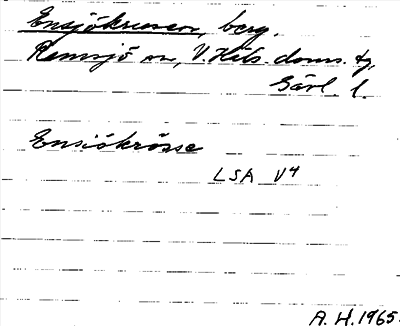 Ensjökrusen, berg.
Remsjö sn, V. Häls. doms. tg,
Gävl. l.
Ensiökröse
LSA V4
A. H. 1965.